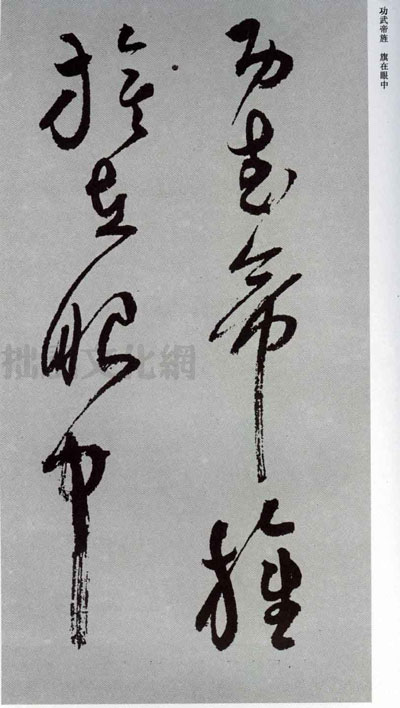 功武帝旌 旗在眼中
功武帝旌
旗在眼中
拙文化網